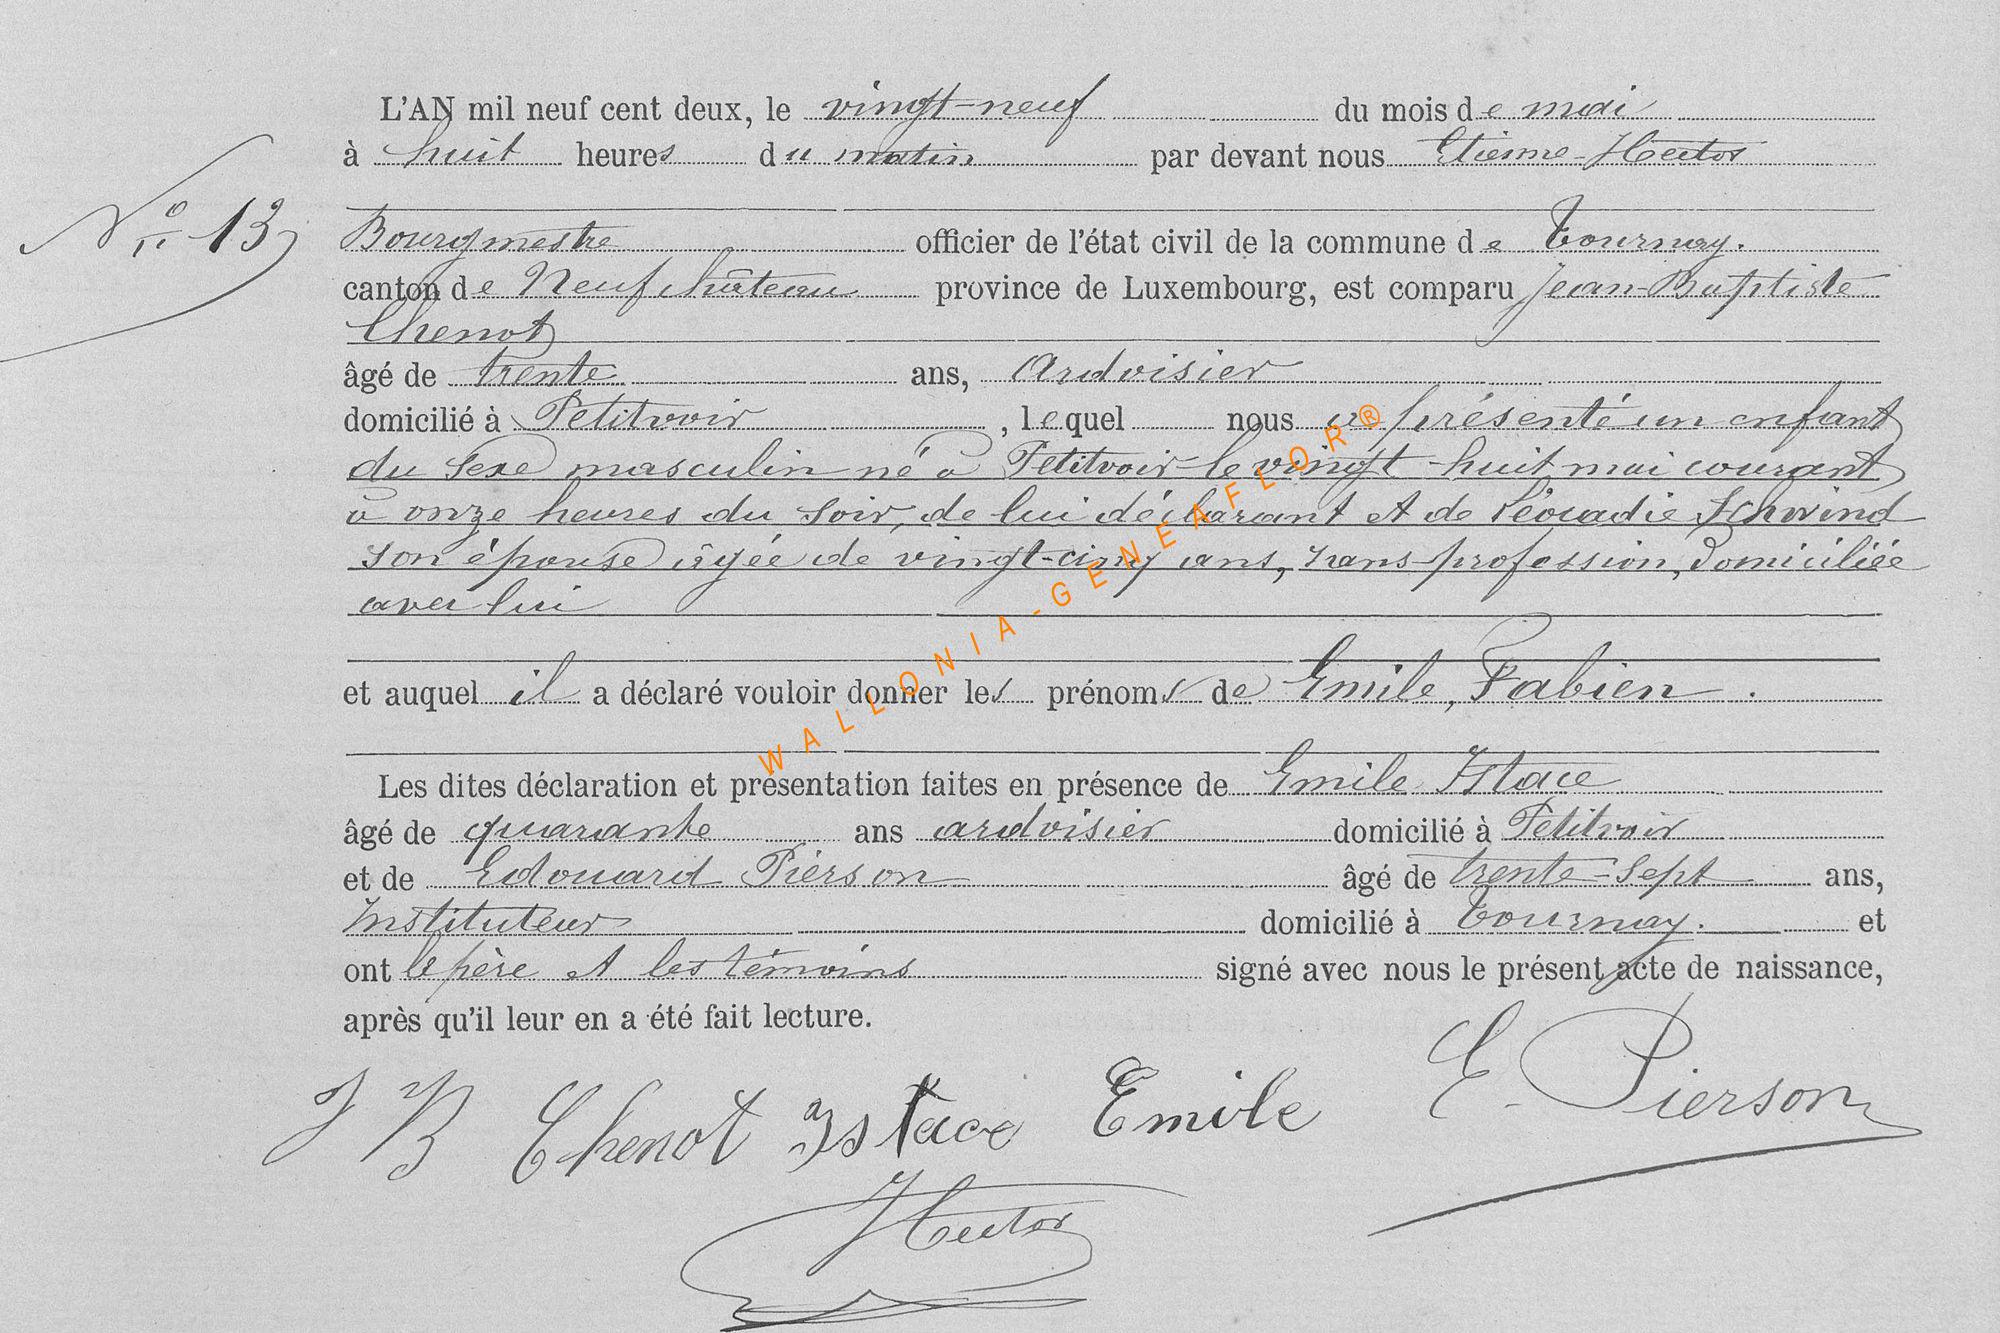 L'AN mil neuf cent deux, le vingt-neuf du mois de mai
à huit heures du matin par devant nous Etienne-Hector
N° 13
Bourgmestre officier de l'état civil de la commune de Tournay.
canton de Neufchâteau province de Luxembourg, est comparu Jean-Baptiste
Chenot
âgé de trente ans, Ardoisier
domicilié à Petitvoir, lequel nous a présenté un enfant
du sexe masculin né à Petitvoir le vingt-huit mai courant
à onze heures du soir, de lui déclarant et de Léocadie Schwind
son épouse âgée de vingt-cinq ans, sans profession, domiciliée
avec lui
et auquel il a déclaré vouloir donner les prénoms de Emile, Fabien.
Les dites déclaration et présentation faites en présence de Emile Istace
âgé de quarante ans ardoisier domicilié à Petitvoir
et de Edouard Pierson âgé de trente-sept ans,
Instituteur domicilié à Tournay. et
ont le père et les témoins signé avec nous le présent acte de naissance,
après qu'il leur en a été fait lecture.
J B Chenot Istace Emile E. Pierson
Hector
WALLONIA-GENEAFLOR®